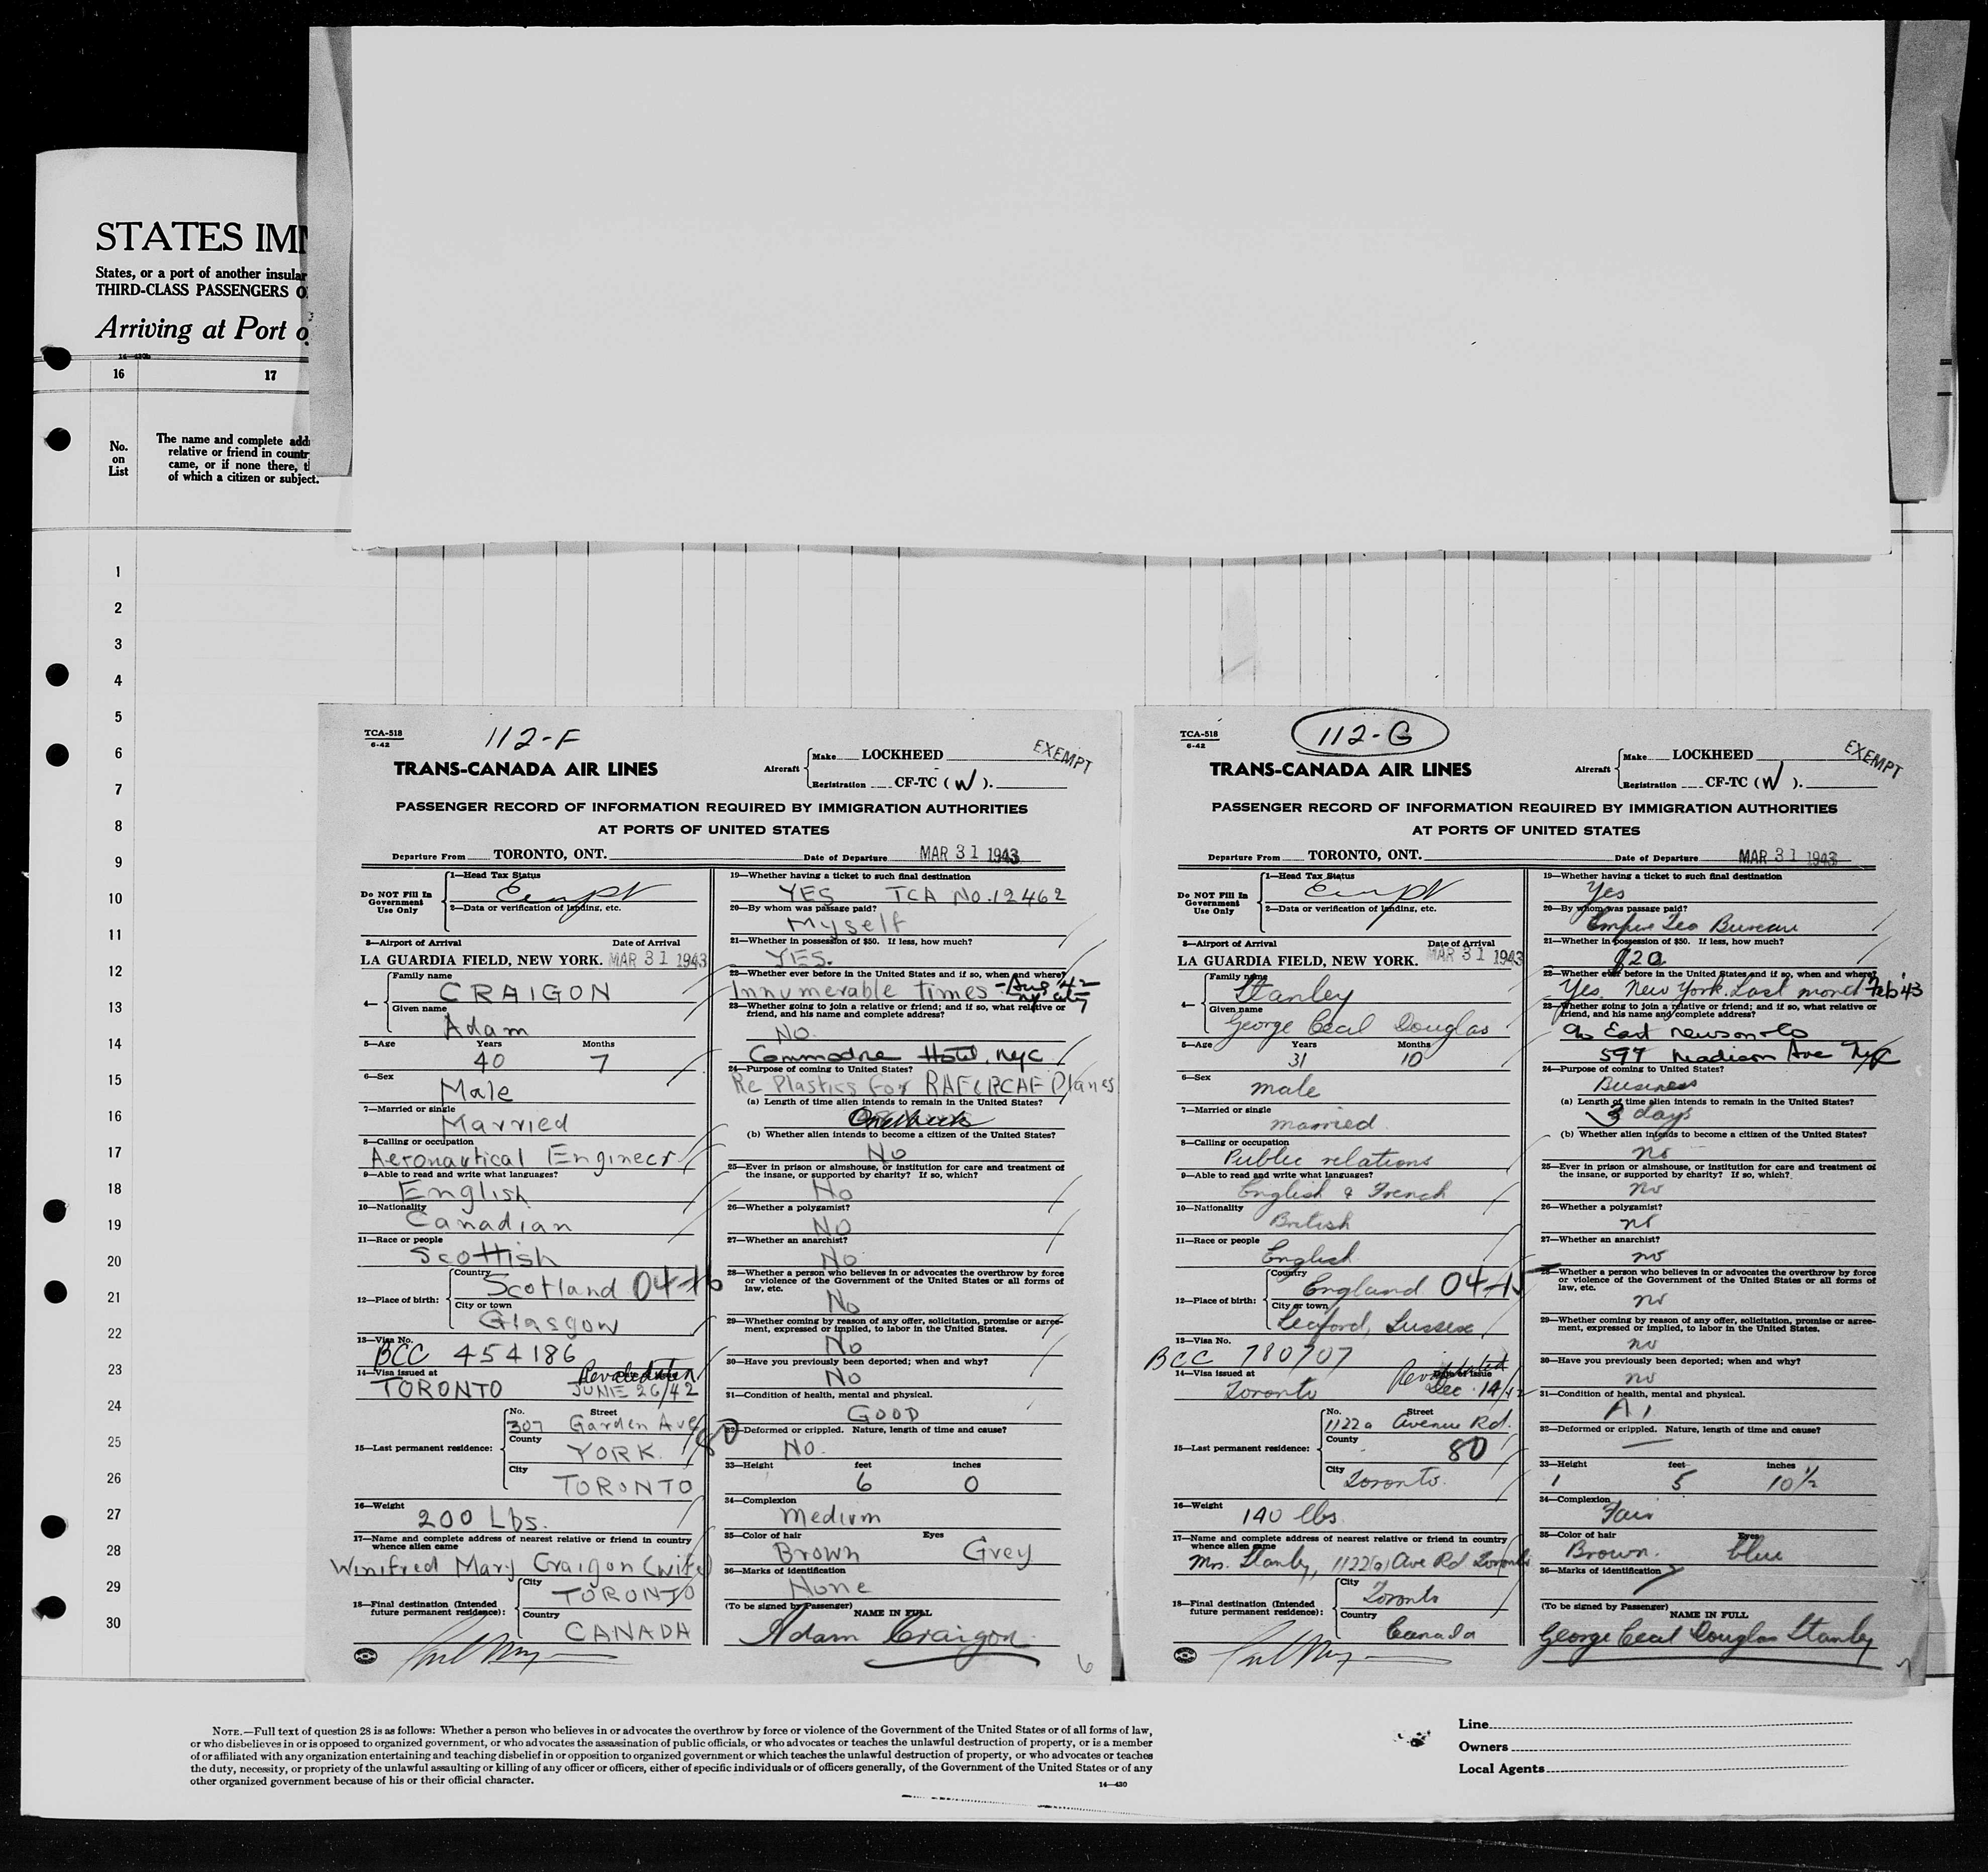 STATES IM
States, or a port of another insular
THIRD-CLASS PASSENGERS O
Arriving at Port o
16 17
No. on List
The name and complete add
relative or friend in countr
came, or if none there, t
of which a citizen or subject.
1
2
3
4
5
6
7
8
9
10
11
12
13
14
15
16
17
18
19
20
21
22
23
24
25
26
27
28
29
30
TCA-518
6-42
112-F
EXEMPT
TRANS-CANADA AIR LINES
Aircraft Make LOCKHEED
Registration CF-TC (W).
PASSENGER RECORD OF INFORMATION REQUIRED BY IMMIGRATION AUTHORITIES
AT PORTS OF UNITED STATES
Departure From TORONTO, ONT. Date of Departure MAR 31 1943
Do NOT Fill In
Government
Use Only
1—Head Tax Status
Exempt
2—Data or verification of landing, etc.
3—Airport of Arrival Date of Arrival
LA GUARDIA FIELD, NEW YORK. MAR 31 1943
4— Family name
CRAIGON
Given name
Adam
5—Age Years Months
40 7
6—Sex
Male
7—Married or single
Married
8—Calling or occupation
Aeronautical Engineer
9—Able to read and write what languages?
English
10—Nationality
Canadian
11—Race or people
Scottish
12—Place of birth: Country
Scotland 04-16
City or town
Glasgow
13—Visa No.
BCC 454186
14—Visa issued at
TORONTO JUNE 26/42
15—Last permanent residence: No. Street
307 Garden Ave
County
YORK. 80
City
TORONTO
16—Weight
200 Lbs.
17—Name and complete address of nearest relative or friend in country
whence alien came
Winifred Mary Craigon (wife)
18—Final destination (Intended
future permanent residence): City
TORONTO
Country
CANADA
19—Whether having a ticket to such final destination
YES TCA No.12462
20—By whom was passage paid?
Myself
21—Whether in possession of $50. If less, how much?
YES.
22—Whether ever before in the United States and if so, when and where?
Innumerable times - Aug '42
NY City
23—Whether going to join a relative or friend; and if so, what relative or
friend, and his name and complete address?
NO.
Commodore Hotel, NYC
24—Purpose of coming to United States?
Re Plastics for RAF & RCAF Planes
(a) Length of time alien intends to remain in the United States?
One Week
(b) Whether alien intends to become a citizen of the United States?
No
25—Ever in prison or almshouse, or institution for care and treatment of
the insane, or supported by charity? If so, which?
No
26—Whether a polygamist?
NO
27—Whether an anarchist?
No
28—Whether a person who believes in or advocates the overthrow by force
or violence of the Government of the United States or all forms of
law, etc.
No
29—Whether coming by reason of any offer, solicitation, promise or agree-
ment, expressed or implied, to labor in the United States.
No
30—Have you previously been deported; when and why?
No
31—Condition of health, mental and physical.
GOOD
32—Deformed or crippled. Nature, length of time and cause?
NO.
33—Height feet inches
6 0
34—Complexion
Medium
35—Color of hair Eyes
Brown Grey
36—Marks of identification
None
(To be signed by Passenger)
NAME IN FULL
Adam Craigon
6
TCA-518
6-42
112-G
EXEMPT
TRANS-CANADA AIR LINES
Aircraft Make LOCKHEED
Registration CF-TC (W).
PASSENGER RECORD OF INFORMATION REQUIRED BY IMMIGRATION AUTHORITIES
AT PORTS OF UNITED STATES
Departure From TORONTO, ONT. Date of Departure MAR 31 1943
Do NOT Fill In
Government
Use Only
1—Head Tax Status
Exempt
2—Data or verification of landing, etc.
3—Airport of Arrival Date of Arrival
LA GUARDIA FIELD, NEW YORK. MAR 31 1943
4— Family name
Stanley
Given name
George Cecil Douglas
5—Age Years Months
31 10
6—Sex
male
7—Married or single
married.
8—Calling or occupation
Public relations
9—Able to read and write what languages?
English & French
10—Nationality
British
11—Race or people
English
12—Place of birth: Country
England 04-15
City or town
Seaford, Sussex
13—Visa No.
BCC 780707
14—Visa issued at Date of Issue
Toronto Dec. 14/42
15—Last permanent residence: No. Street
1122a Avenue Rd.
County
80
City
Toronto.
16—Weight
140 lbs.
17—Name and complete address of nearest relative or friend in country
whence alien came
Mrs. Stanley, 1122(a) Ave Rd Toronto
18—Final destination (Intended
future permanent residence): City
Toronto
Country
Canada
19—Whether having a ticket to such final destination
Yes
20—By whom was passage paid?
Empire Tea Bureau
21—Whether in possession of $50. If less, how much?
$20
22—Whether ever before in the United States and if so, when and where?
Yes. New York. Last month Feb '43
23—Whether going to join a relative or friend; and if so, what relative or
friend, and his name and complete address?
c/o Earl Newsom & Co
597 Madison Ave NYC
24—Purpose of coming to United States?
Business
(a) Length of time alien intends to remain in the United States?
3 days
(b) Whether alien intends to become a citizen of the United States?
no
25—Ever in prison or almshouse, or institution for care and treatment of
the insane, or supported by charity? If so, which?
no
26—Whether a polygamist?
no
27—Whether an anarchist?
no
28—Whether a person who believes in or advocates the overthrow by force
or violence of the Government of the United States or all forms of
law, etc.
no
29—Whether coming by reason of any offer, solicitation, promise or agree-
ment, expressed or implied, to labor in the United States.
no
30—Have you previously been deported; when and why?
no
31—Condition of health, mental and physical.
A1
32—Deformed or crippled. Nature, length of time and cause?
33—Height feet inches
5 10 1/2
34—Complexion
Fair
35—Color of hair Eyes
Brown. blue
36—Marks of identification
(To be signed by Passenger)
NAME IN FULL
George Cecil Douglas Stanley
7
NOTE.—Full text of question 28 is as follows: Whether a person who believes in or advocates the overthrow by force or violence of the Government of the United States or of all forms of law,
or who disbelieves in or is opposed to organized government, or who advocates the assassination of public officials, or who advocates or teaches the unlawful destruction of property, or is a member
of or affiliated with any organization entertaining and teaching disbelief in or opposition to organized government or which teaches the unlawful destruction of property, or who advocates or teaches
the duty, necessity, or propriety of the unlawful assaulting or killing of any officer or officers, either of specific individuals or of officers generally, of the Government of the United States or of any
other organized government because of his or their official character.
14—430
Line
Owners
Local Agents